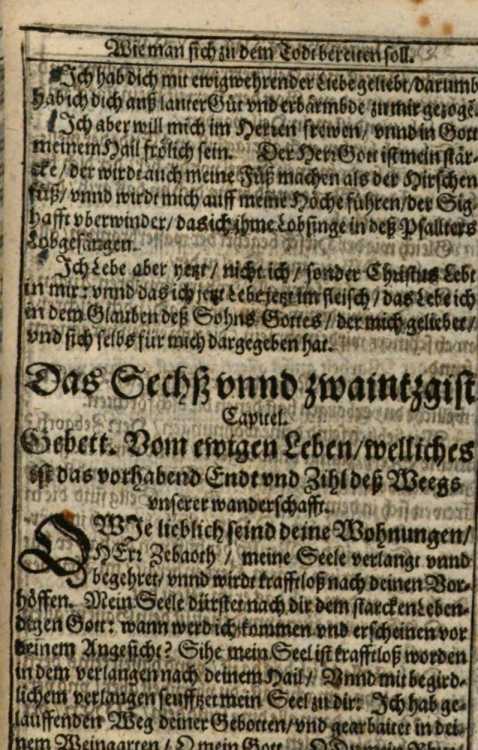 Wie man sich zu dem Todt bereiten soll.
Ich hab dich mit ewigwehrender Liebe geliebt / darumb
hab ich dich auß lauter Güt vnd erbärmbde zu mir gezogẽ.
Ich aber will mich im Herren frewen / vnnd in Gott
meinem Hail frölich sein. Der Herr Gott ist mein stär-
cke / der wirdt auch meine Füß machen als der Hirschen
füß / vnnd wirdt mich auff meine Höche führen / der Sig-
hafft vberwinder / das ich jhme Lobsinge in deß Psallters
Lobgesängen.
Ich Lebe aber yetzt / nicht ich / sonder Christus Lebt
in mir: vnnd das ich jetzt Lebe jetzt im fleisch / das Lebe ich
in dem Glauben deß Sohns Gottes / der mich geliebet /
vnd sich selbs für mich dargegeben hat.
Das Sechß vnnd zwaintzgist
Capitel.
Gebett. Vom ewigen Leben / welliches
ist das vorhabend Endt vnd Zihl deß Weegs
vnserer wanderschafft.
O WJe lieblich seind deine Wohnungen /
HErr Zebaoth / meine Seele verlangt vnnd
begehret / vnnd wirdt krafftloß nach deinen Vor-
höffen. Mein Seele dürstet nach dir dem starcken Leben-
digen Gott: wann werd ich kommen vnd erscheinen vor
deinem Angesicht? Sihe mein Seel ist krafftloß worden
in dem verlangen nach deinem Hail / Vnnd mit begird-
lichem verlangen seufftzet mein Seel zu dir: Ich hab ge-
lauffenden Weg deiner Gebotten / vnd gearbaitet in dei-
nem Weingarten / O mein Gott